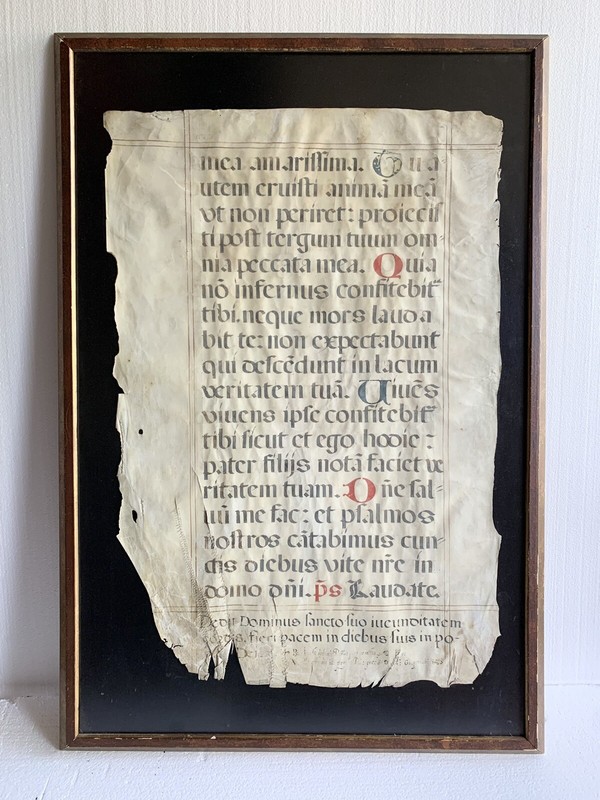 mea amarissima. Tu a
utem eruisti animā meā
vt non periret: proiecis
ti post tergum tuum om-
nia peccata mea. Quia
nō infernus confitebit̃
tibi. neque mors lauda
bit te: non expectabunt
qui descēdunt in lacum
veritatem tuā. Uiuēs
viuens ipse confitebit̃
tibi sicut et ego hodie:
pater filijs notā faciet ve
ritatem tuam. Dñe sal-
uū me fac: et psalmos
nostros cātabimus cun-
ctis diebus vite nr̄e in
domo dñi. p̄s Laudate.
Dedit Dominus sancto suo iucunditatem
fieri pacem in diebus suis in po-